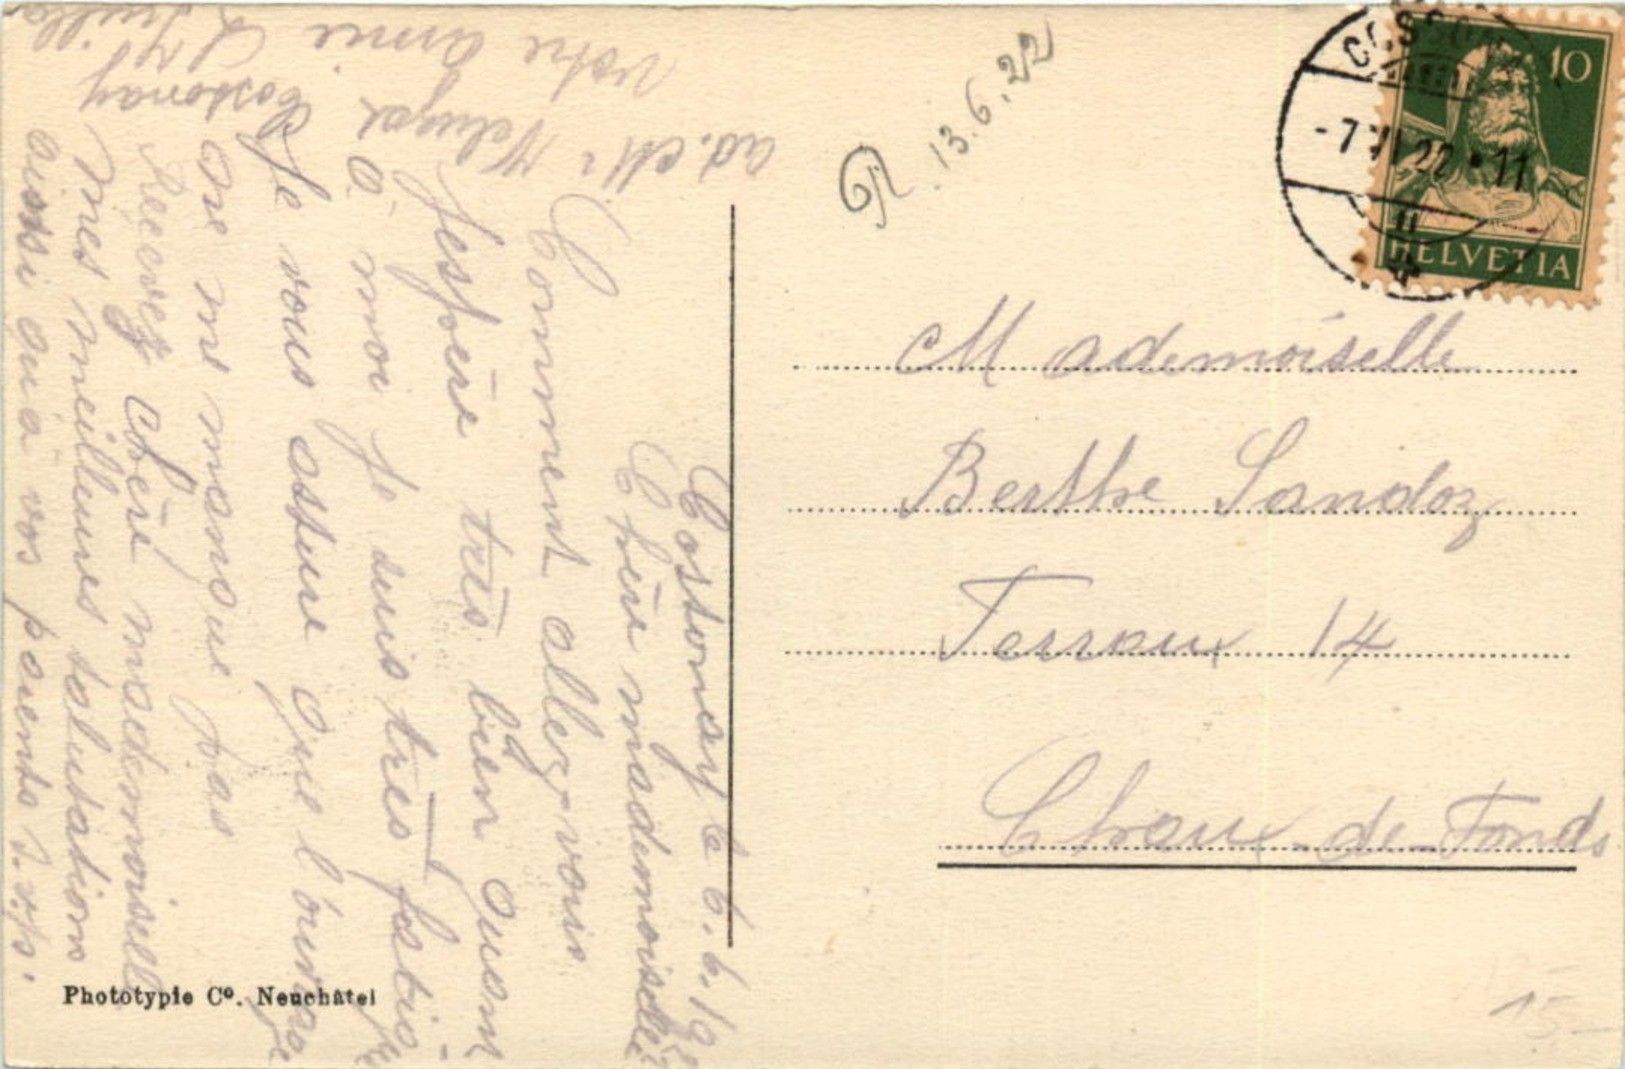 Cossonay le 6.6.19
Chère mademoiselle
Comment allez-vous
j'espère très bien quand
à moi je suis très fatig
Je vous assure que l'ouvrage
ne me manque pas
Recevez chère mademoiselle
mes meilleures salutations
aissi qu'a vos parents s.v.p.
Votre amie
Cossonay
ad. Mr
R 13.6.22
COSSON
-7.VI.22.11
10
HELVETIA
Mademoiselle
Berthe Sandoz
Terraux 14
Chaux-de-Fonds
Phototypie Co. Neuchâtel
15-